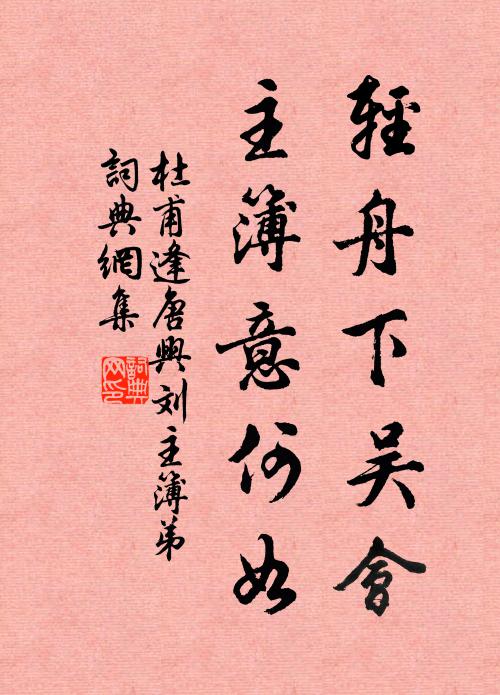 輕舟下吴會
主簿意何如
杜甫逢唐興刘主簿弟
詞典網集
詞典網印